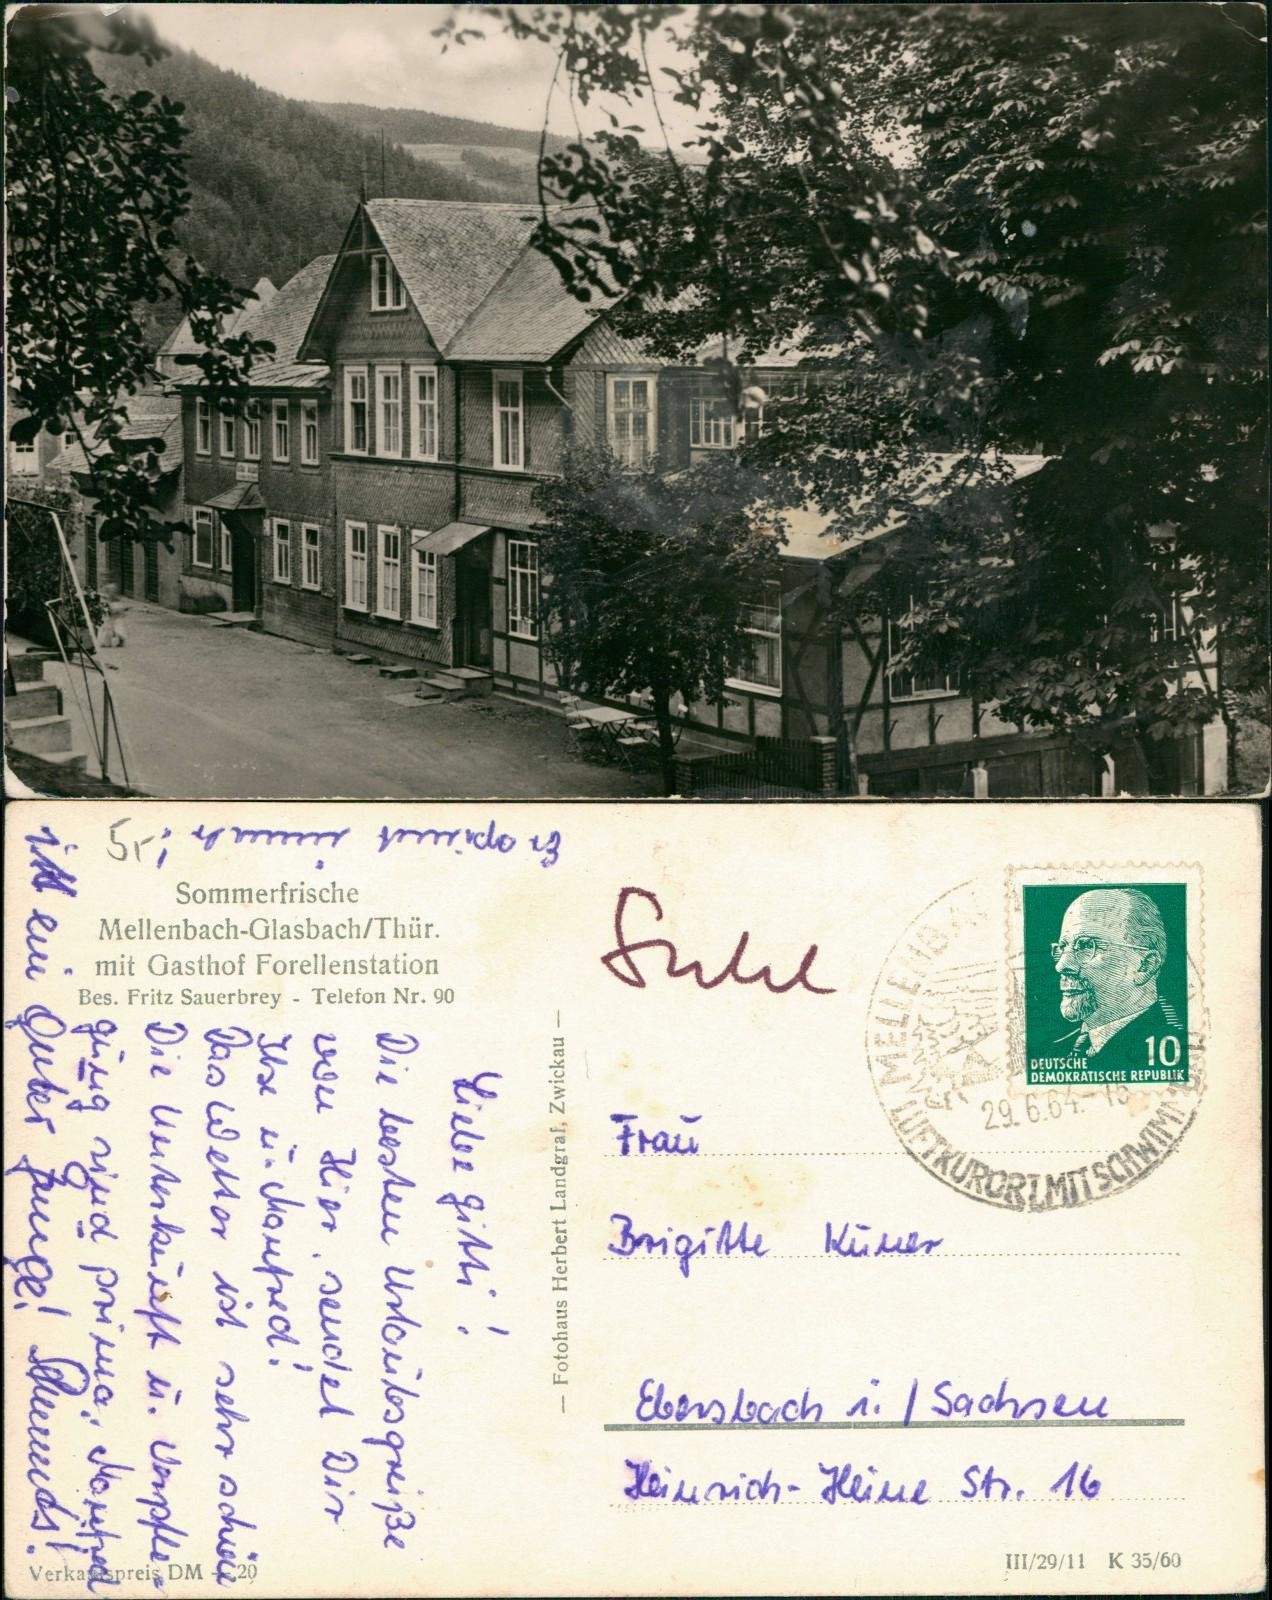 5,-
Sommerfrische
Mellenbach-Glasbach/Thür.
mit Gasthof Forellenstation
Bes. Fritz Sauerbrey - Telefon Nr. 90
Liebe Gitti!
Die besten Urlaubsgrüße
von Hier, sendet Dir
Ilse u. Manfred!
Das Wetter ist sehr schön
Die Unterkunft u. Verpfle-
gung sind prima. Manfred
ist ein Guter Junge!
Er
Verkaufspreis DM -.20
— Fotohaus Herbert Landgraf, Zwickau —
Suhl
DEUTSCHE
DEMOKRATISCHE REPUBLIK
10
MELLENBA
29.6.64.-16
LUFTKURORT MIT SCHWIMM
Frau
Brigitte
Ebersbach i./Sachsen
Heinrich-Heine Str. 16
III/29/11 K 35/60